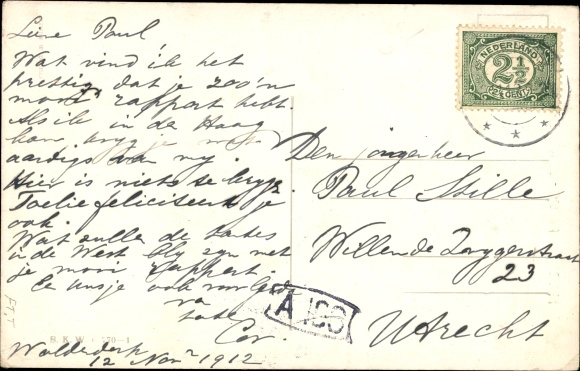 Lieve Paul
Wat vind ik het
prettig dat je zoo'n
mooi rapport hebt.
Als ik in de Haag
kom krijg je wat
aardigs van mij.
Hier is niets te krijg.
Toelie feliciteert je
ook.
Wat zullen de tantes
in de West blij zijn met
je mooi rapport.
ook van
Cor.
12 Nov 1912
S. K. W. 170-1
NEDERLAND
2½
2½ CENT
Den jongeheer
Paul Stille
Willem de Zwygerstraat
23
Utrecht